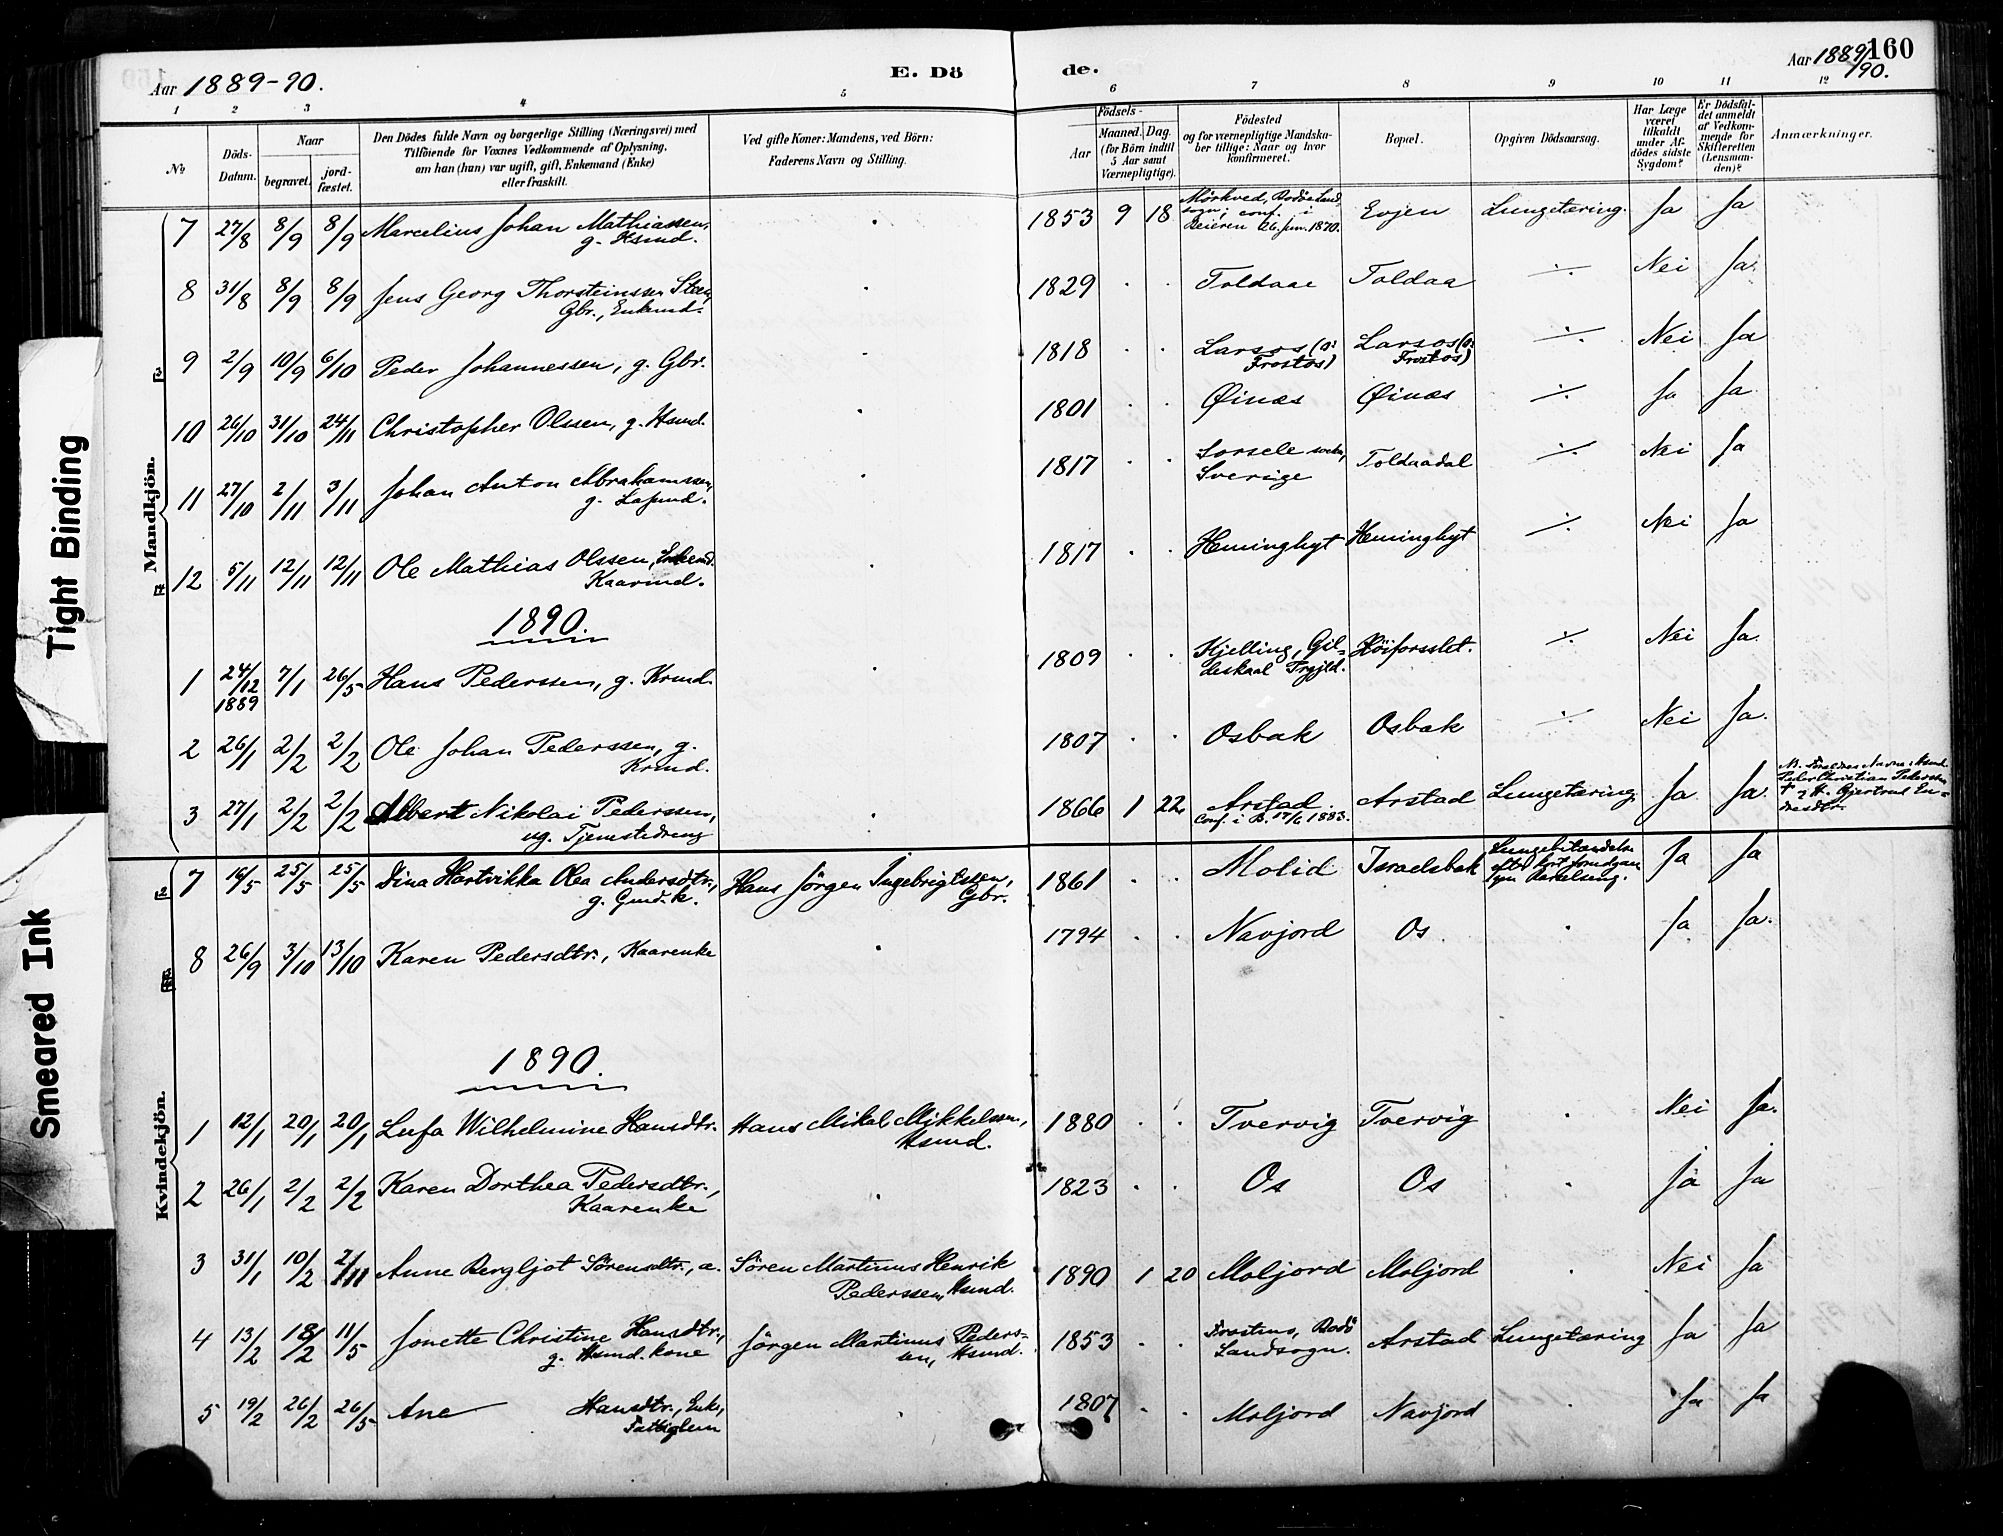 Aar 1889-90.
E. Dö
de.
Aar 1889/90.
160
1 2 3 4 5 6 7 8 9 10 11 12
No
Döds-Datum.
Naar
begravet.
jord-fæstet.
Den Dödes fulde Navn og borgerlige Stilling (Næringsvei) med
Tilföiende for Voxnes Vedkommende af Oplysning,
om han (hun) var ugift, gift, Enkemand (Enke)
eller fraskilt.
Ved gifte Koner: Mandens, ved Börn:
Faderens Navn og Stilling.
Födsels-
Aar
Maaned. Dag.
(for Börn indtil
5 Aar samt
Værnepligtige).
Födested
og for værnepligtige Mandska-
ber tillige: Naar og hvor
konfirmeret.
Bopæl.
Opgiven Dödsaarsag.
Har Læge
været
tilkaldt
under Af-
dödes sidste
Sygdom?
Er Dödsfal-
det anmeldt
af Vedkom-
mende for
Skifteretten
(Lensman-
den)?
Anmærkninger.
Mandkjön.
7 27/8 8/9 8/9 Marcelius Johan Mathiassen, g. Hsmd. 1853 9 18 Mörkved, Bodö Landsogn; conf. i Beieren 26 Jun. 1870. Evjen Lungetæring. Ja Ja
8 31/8 8/9 8/9 Jens Georg Thorsteinssen Gbr., Enkmd. 1829 Toldaae Toldaa ./. Nei Ja.
9 2/9 10/9 6/10 Peder Johannessen, g. Gbr. 1818 Larsos (o: Frostos) Larsos (o: Frostos) ./. Nei Ja
10 26/10 31/10 24/11 Christopher Olssen, g. Hsmd. 1801 Øinæs Øinæs ./. Ja Ja.
11 27/10 2/11 3/11 Johan Anton Abrahamssen, g. 1817 Sorsele Sverige Toldaadal ./. Nei Ja
12 5/11 12/11 12/11 Ole Mathias Olssen, Enkemd. Kaarmd. 1817 Heminghyt Heminghyt ./. Nei Ja
1890.
1 24/12 1889 7/1 26/5 Hans Pederssen, g. Krmd. 1809 Kjelling, Gildeskaal Prgjld. Höiforsslet. ./. Nei Ja.
2 26/1 2/2 2/2 Ole Johan Pederssen, g. Krmd. 1807 Osbak Osbak ./. Nei Ja.
3 27/1 2/2 2/2 Albert Nikolai Pederssen, ug. Tjenestedreng 1866 1 22 Arstad. Conf. i B. 17/6 1883. Arstad Lungetæring Ja Ja. Peder Christian Pederssen Gjertrud Endresdtr.
Kvindekjön.
7 16/5 25/5 25/5 Dina Hartvikka Olea Andersdtr., g. Gmd.k. Hans Jörgen Ingebrigtssen, Gbr. 1861 Molid Israelsbak Lungebetændelse efter kort forudgangen Barselseng. Ja Ja
8 26/9 3/10 13/10 Karen Pedersdtr., Kaarenke 1794 Navjord Os Ja Ja.
1890.
1 12/1 20/1 20/1 Lufa Wilhelmine Hansdtr. Hans Mikal Mikkelssen, Hsmd. 1880 Tvervig Tvervig Nei Ja.
2 26/1 2/2 2/2 Karen Dorthea Pedersdtr., Kaarenke 1823 Os Os Ja Ja
3 31/1 10/2 Anne Bergljot Sörensdtr., a. Sören Martinus Henrik Pederssen, Hsmd. 1890 1 20 Moljord Moljord Nei Ja
4 13/2 18/2 11/5 Jonette Christine Hansdtr., g. Hsmd. kone Jörgen Martinus Pederssen, Hsmd. 1853 Bodö Landsogn. Arstad Lungetæring Ja Ja
5 19/2 26/2 26/5 Ane Hansdtr., Enke, Fattiglem 1807 Moljord Navjord Ja Ja
Tight Binding
Smeared Ink